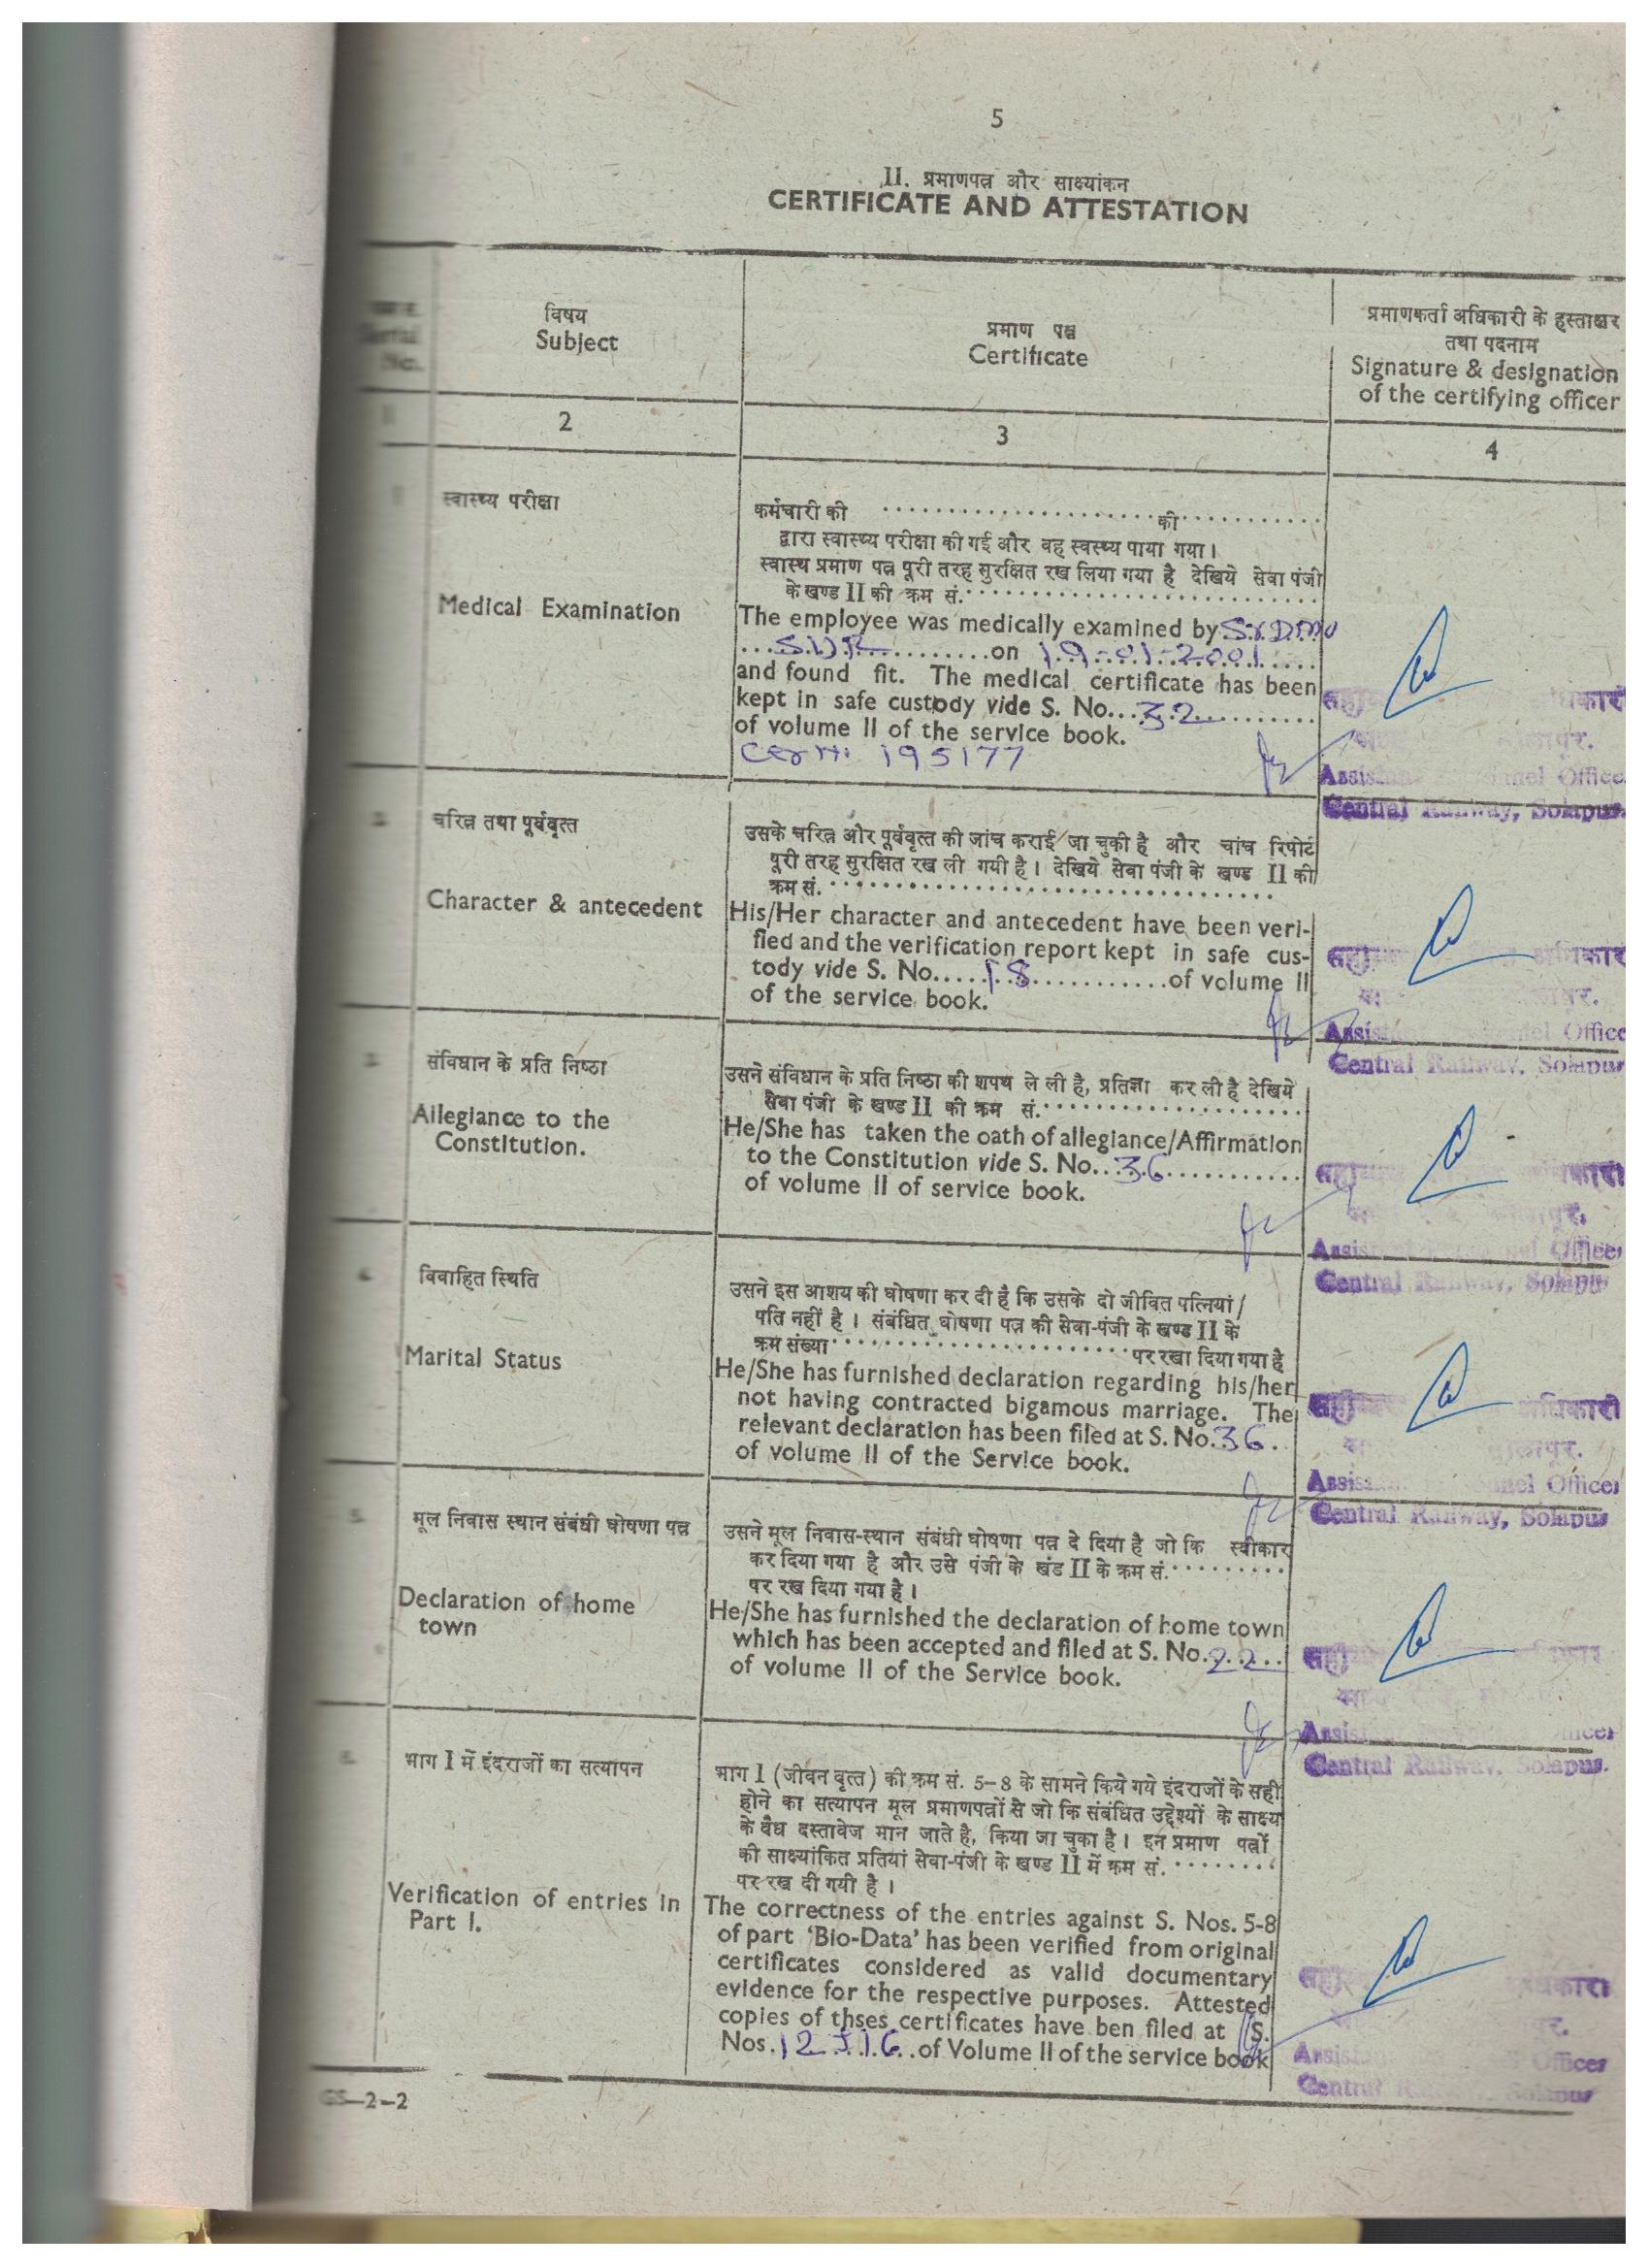 5
II. प्रमाणपत्र और साक्ष्यांकन
CERTIFICATE AND ATTESTATION
Serial
No.
विषय
Subject
प्रमाण पत्र
Certificate
प्रमाणकर्ता अधिकारी के हस्ताक्षर
तथा पदनाम
Signature & designation
of the certifying officer
1
2
3
4
1
स्वास्थ्य परीक्षा
Medical Examination
कर्मचारी की ..................... की ............
द्वारा स्वास्थ्य परीक्षा की गई और वह स्वस्थ्य पाया गया।
स्वास्थ प्रमाण पत्र पूरी तरह सुरक्षित रख लिया गया है देखिये सेवा पंजी
के खण्ड II की क्रम सं. ..............................
The employee was medically examined by Sr. DMO
...SUR...........on 19-01-2001.....
and found fit. The medical certificate has been
kept in safe custody vide S. No...32..........
of volume II of the service book.
Certi. 195177
Assistant Personnel Office
Central Railway, Solapur.
2.
चरित्र तथा पूर्ववृत्त
Character & antecedent
उसके चरित्र और पूर्ववृत्त की जांच कराई जा चुकी है और चांच रिपोर्ट
पूरी तरह सुरक्षित रख ली गयी है। देखिये सेवा पंजी के खण्ड II की
क्रम सं. ..............................
His/Her character and antecedent have been veri-
fied and the verification report kept in safe cus-
tody vide S. No.....18............of volume II
of the service book.
Assistant Personnel Office
Central Railway, Solapur
3.
संविधान के प्रति निष्ठा
Allegiance to the
Constitution.
उसने संविधान के प्रति निष्ठा की शपथ ले ली है, प्रतिज्ञा कर ली है देखिये
सेवा पंजी के खण्ड II की क्रम सं. ....................
He/She has taken the oath of allegiance/Affirmation
to the Constitution vide S. No...36............
of volume II of service book.
Assistant Personnel Officer
Central Railway, Solapur
4.
विवाहित स्थिति
Marital Status
उसने इस आशय की घोषणा कर दी है कि उसके दो जीवित पत्नियां/
पति नहीं है। संबंधित घोषणा पत्र की सेवा-पंजी के खण्ड II के
क्रम संख्या ....................... पर रखा दिया गया है
He/She has furnished declaration regarding his/her
not having contracted bigamous marriage. The
relevant declaration has been filed at S. No.36..
of volume II of the Service book.
Assistant Personnel Officer
Central Railway, Solapur
5.
मूल निवास स्थान संबंधी घोषणा पत्र
Declaration of home
town
उसने मूल निवास-स्थान संबंधी घोषणा पत्र दे दिया है जो कि स्वीकार
कर दिया गया है और उसे पंजी के खंड II के क्रम सं. .........
पर रख दिया गया है।
He/She has furnished the declaration of home town
which has been accepted and filed at S. No.22...
of volume II of the Service book.
Assistant Personnel Officer
Central Railway, Solapur.
6.
भाग I में इंदराजों का सत्यापन
Verification of entries in
Part I.
भाग I (जीवन वृत्त) की क्रम सं. 5–8 के सामने किये गये इंदराजों के सही
होने का सत्यापन मूल प्रमाणपत्रों से जो कि संबंधित उद्देश्यों के साक्ष्य
के वैध दस्तावेज मान जाते है, किया जा चुका है। इन प्रमाण पत्रों
की साक्ष्यांकित प्रतियां सेवा-पंजी के खण्ड II में क्रम सं. ........
पर रख दी गयी है।
The correctness of the entries against S. Nos. 5-8
of part ‘Bio-Data’ has been verified from original
certificates considered as valid documentary
evidence for the respective purposes. Attested
copies of thses certificates have ben filed at S.
Nos. 12 16..of Volume II of the service book
Assistant Officer
Central Railway, Solapur
GS—2–2